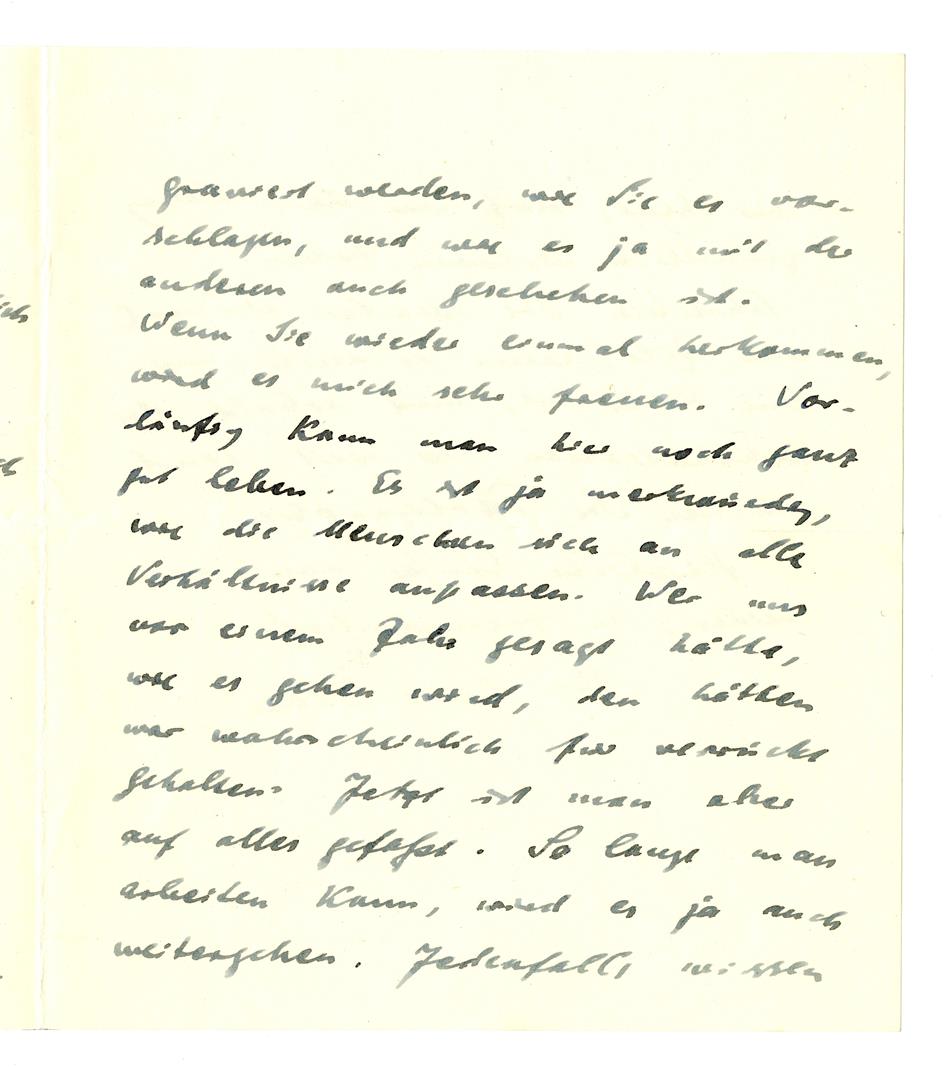 graviert werden, wie Sie es vor-
schlagen, und wie es ja mit den
anderen auch geschehen ist.
Wenn Sie wieder einmal herkommen,
wird es mich sehr freuen. Vor-
läufig kann man hier noch ganz
gut leben. Es ist ja merkwürdig,
wie die Menschen sich an alle
Verhältnisse anpassen. Wer uns
vor einem Jahr gesagt hätte,
wie es gehen wird, den hätten
wir wahrscheinlich für verrückt
gehalten. Jetzt ist man aber
auf alles gefaßt. So lange man
arbeiten kann, wird es ja auch
weitergehen. Jedenfalls wissen